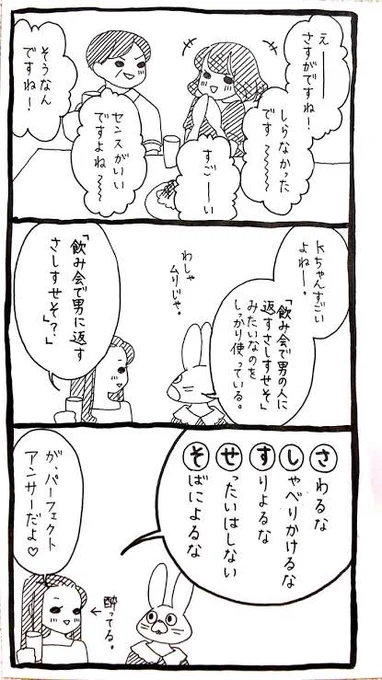 えーー
さすがですね！
しらなかった
です〜〜〜
すごーーい
センスがいい
ですよね〜〜
そうなん
ですね！
Kちゃんすごい
よねー。
「飲み会で男の人に
返すさしすせそ」
みたいなのを
しっかり使っている。
わしゃ
ムリじゃ。
「飲み会で男に返す
さしすせそ？」
さわるな
しゃべりかけるな
すりよるな
せったいはしない
そばによるな
が、パーフェクト
アンサーだよ♡
←酔ってる。